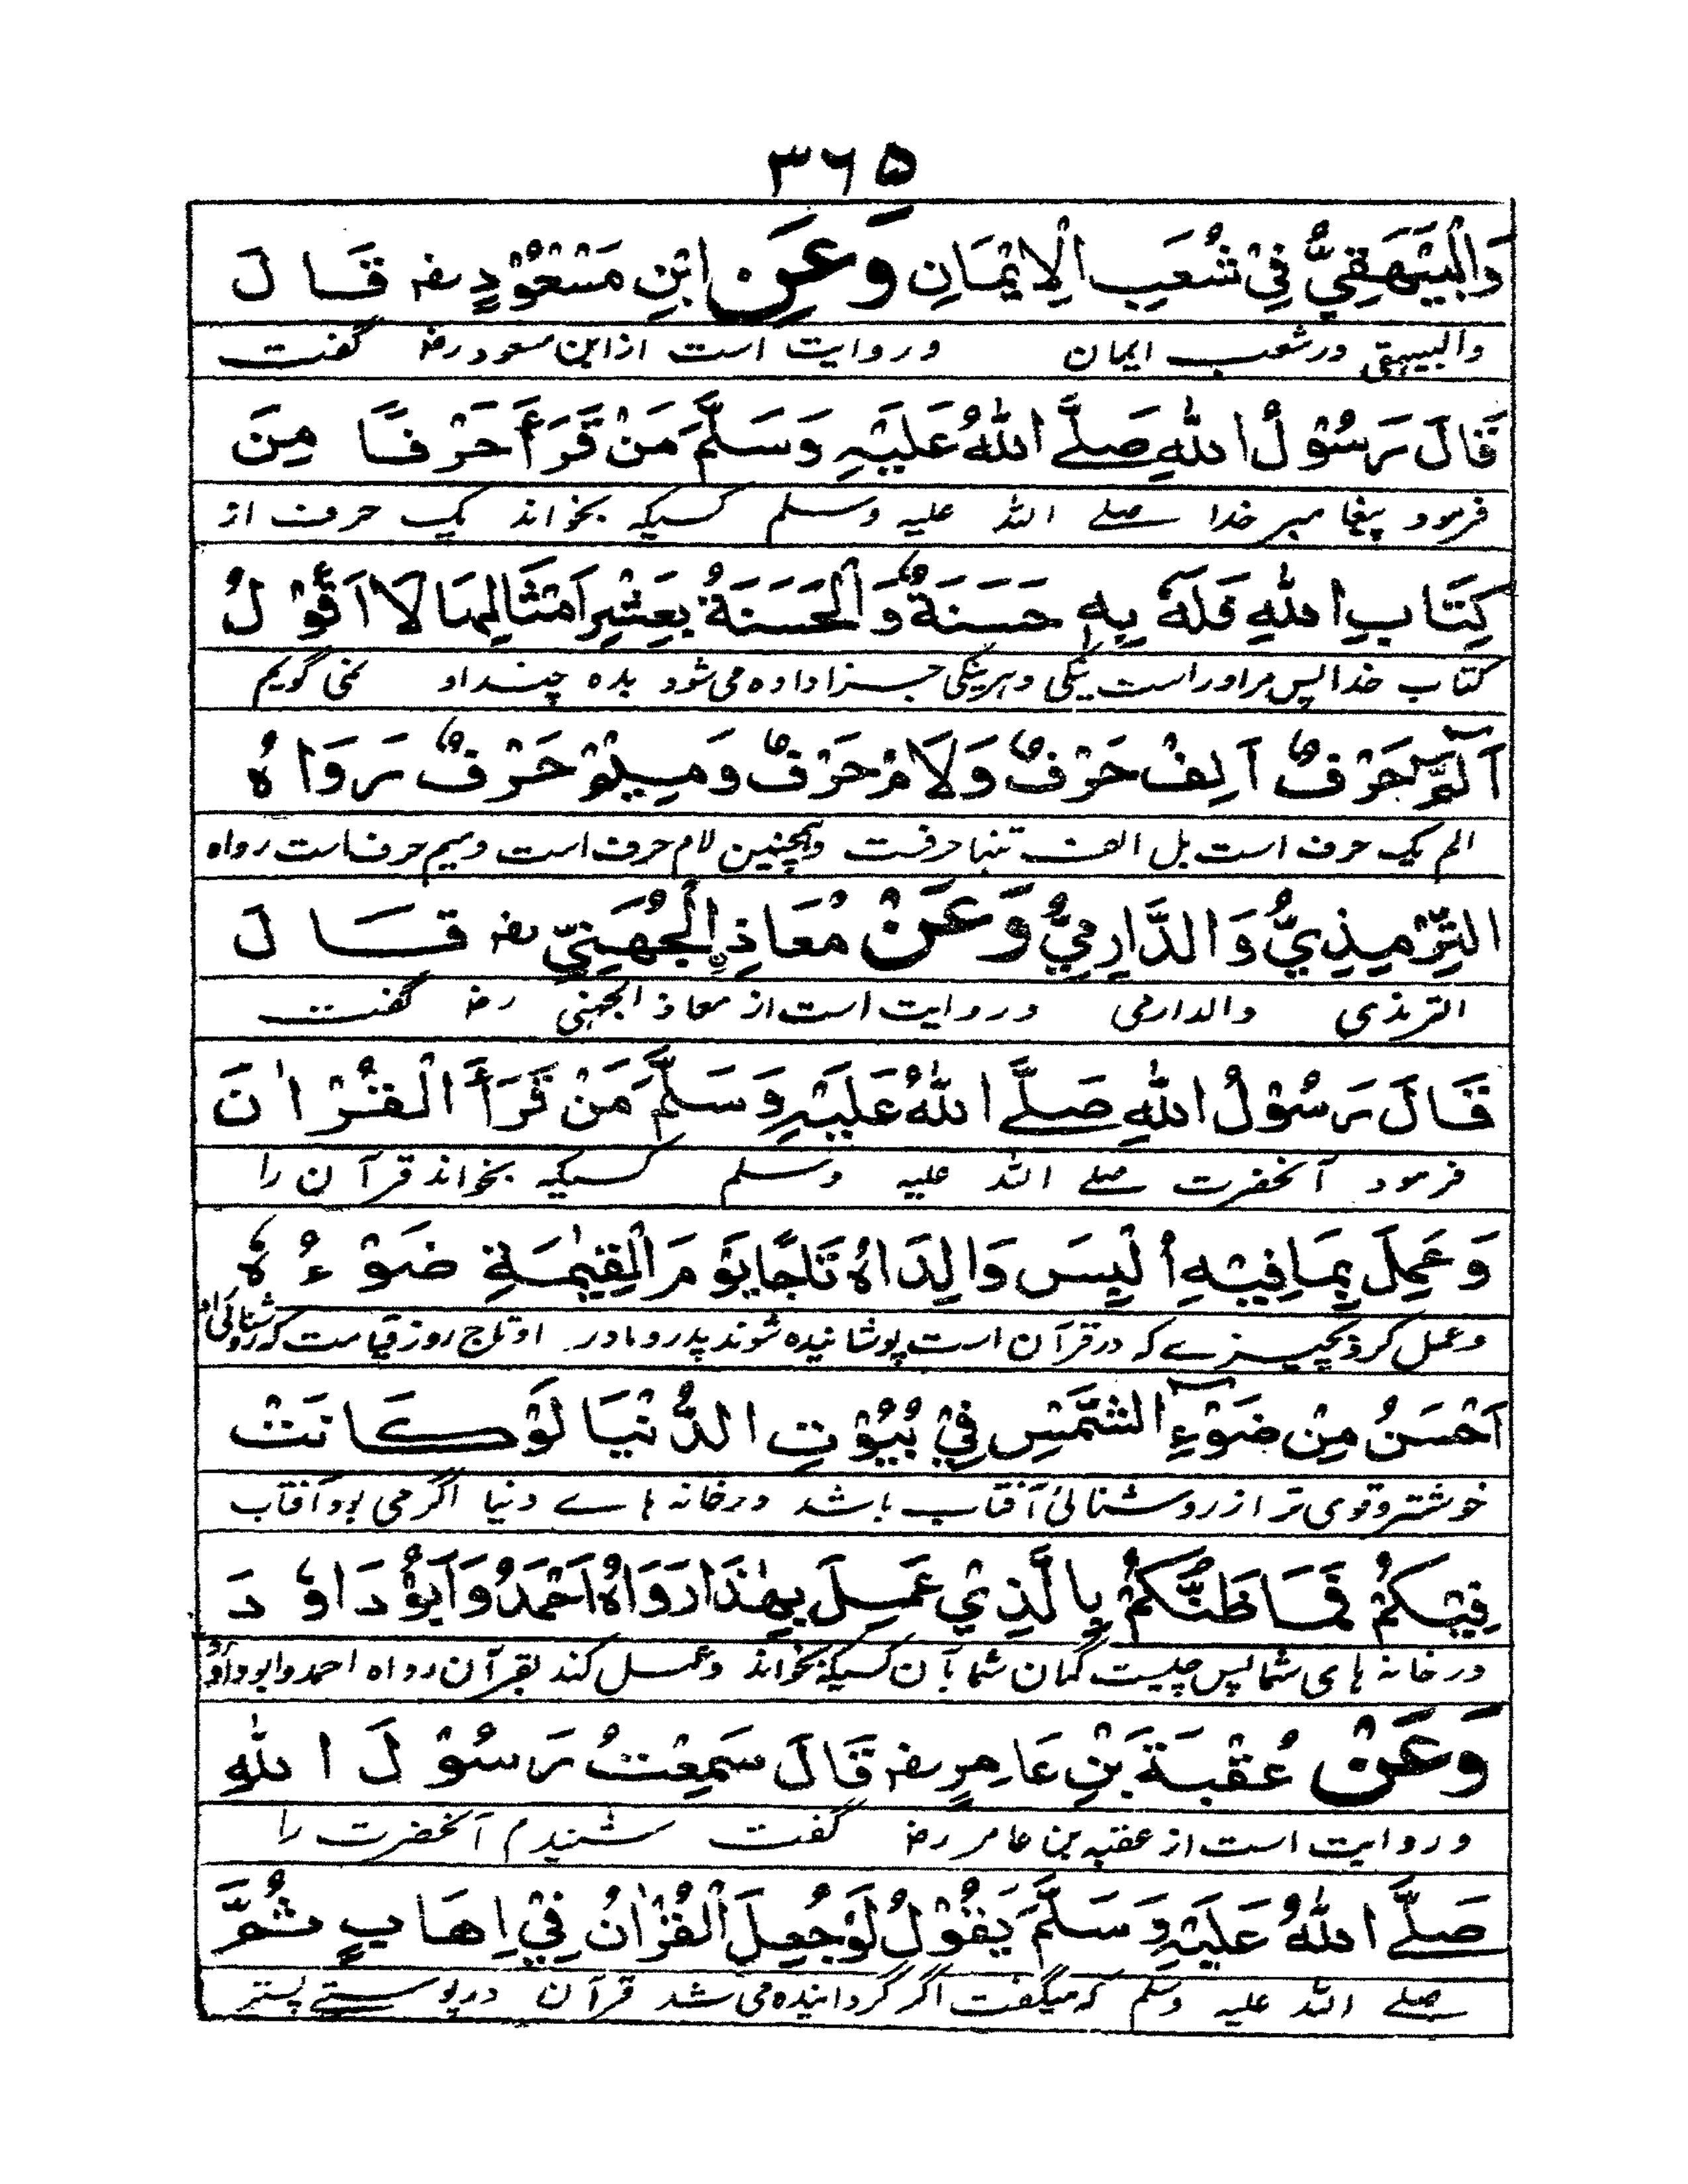 ۳۶۵
وَالْبَيْهَقِيُّ فِيْ شُعَبِ الْاِيْمَانِ وَعَنِ ابْنِ مَسْعُوْدٍ رضہ قَالَ
والبیہقی درشعب ایمان و روایت است از ابن مسعود رضہ گفت
قَالَ رَسُوْلُ اللهِ صَلَّے اللهُ عَلَيْهِ وَسَلَّمَ مَنْ قَرَأَ حَرْفًا مِنَ
فرمود پیغامبر خدا صلے اللہ علیہ وسلم کسیکہ بخواند یک حرف از
كِتَابِ اللهِ فَلَهٗ بِهٖ حَسَنَةٌ وَالْحَسَنَةُ بِعَشْرِ اَمْثَالِهَا لَا اَقُوْلُ
کتاب خدا پس مراوراست نیکی و ہر نیکی جزا داده می شود بده چند او نمی گویم
آلٓمّٓ حَرْفٌ اَلِفٌ حَرْفٌ وَلَامٌ حَرْفٌ وَمِيْمٌ حَرْفٌ رَوَاهُ
الم یک حرف است بل الف تنہا حرفست وہمچنین لام حرف است ومیم حرف است رواه
التِّرْمِيْذِيُّ وَالدَّارِمِيُّ وَعَنْ مُعَاذِ الْجُهَنِيِّ رضہ قَالَ
الترمذی والدارمی و روایت است از معاذ الجہنی رضہ گفت
قَالَ رَسُوْلُ اللهِ صَلَّے اللهُ عَلَيْهِ وَسَلَّمَ مَنْ قَرَأَ الْقُرْاٰنَ
فرمود آنحضرت صلے اللہ علیہ وسلم کسیکہ بخواند قرآن را
وَعَمِلَ بِمَا فِيْهِ اُلْبِسَ وَالِدَاهُ تَاجًا يَوْمَ الْقِيٰمَةِ ضَوْءُهٗ
وعمل کرد بچیزے کہ درقرآن است پوشانیده شوند پدر و مادر او تاج روز قیامت کہ روشنائی او
اَحْسَنُ مِنْ ضَوْءِ الشَّمْسِ فِيْ بُيُوْتِ الدُّنْيَا لَوْ كَانَتْ
خوشتر وقوی تر از روشنائی آفتاب باشد در خانہ ہاے دنیا اگر می بود آفتاب
فِيْكُمْ فَمَا ظَنُّكُمْ بِالَّذِيْ عَمِلَ بِهٰذَا رَوَاهُ اَحْمَدُ وَاَبُوْ دَاوٗدَ
در خانہ ہای شما پس چیست گمان شما بآن کسیکہ بخواند وعمل کند بقرآن رواه احمد وابوداؤد
وَعَنْ عُقْبَةَ بْنِ عَامِرٍ رضہ قَالَ سَمِعْتُ رَسُوْلَ اللهِ
و روایت است از عقبہ بن عامر رضہ گفت شنیدم آنحضرت را
صَلَّے اللهُ عَلَيْهِ وَسَلَّمَ يَقُوْلُ لَوْ جُعِلَ الْقُرْاٰنُ فِيْ اِهَابٍ ثُمَّ
صلے اللہ علیہ وسلم کہ میگفت اگر گردانیده می شد قرآن در پوستے پستر